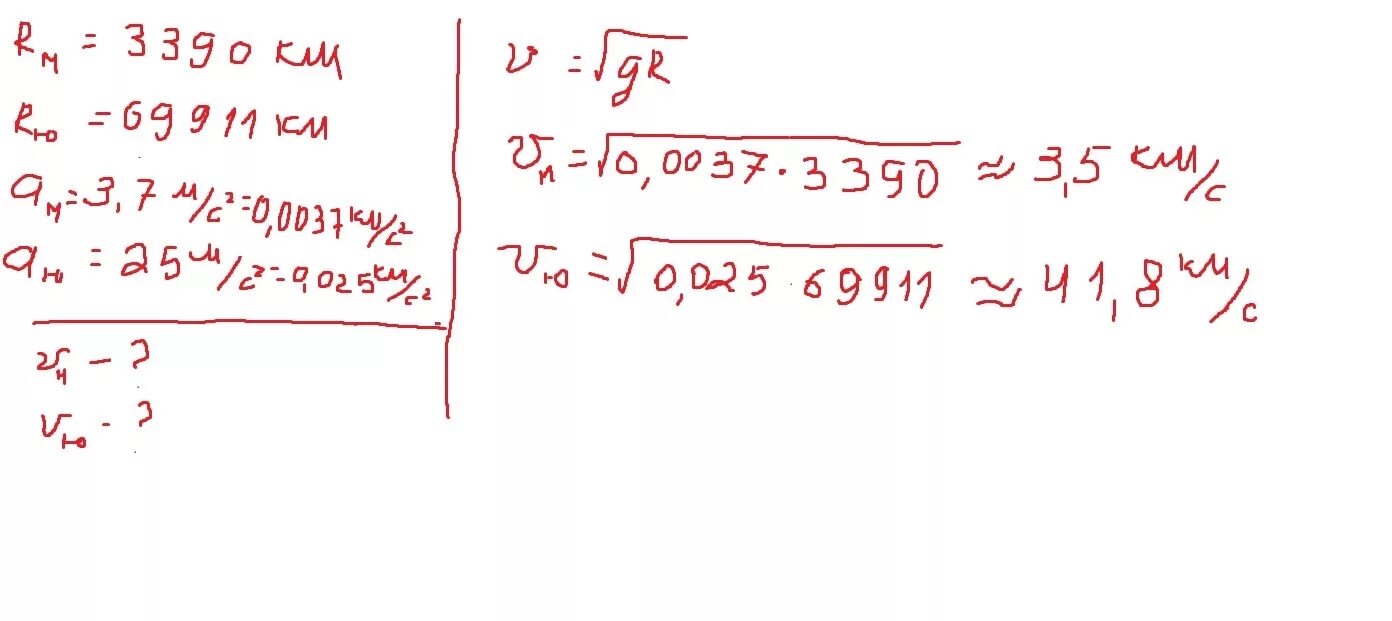 Rм = 3390 км
Rю = 69911 км
aм = 3,7 м/с² = 0,0037 км/с²
aю = 25 м/с² = 0,025 км/с²
vм – ?
vю - ?
v = √gR
vм = √0,0037 · 3390 ≈ 3,5 км/с
vю = √0,025 · 69911 ≈ 41,8 км/с